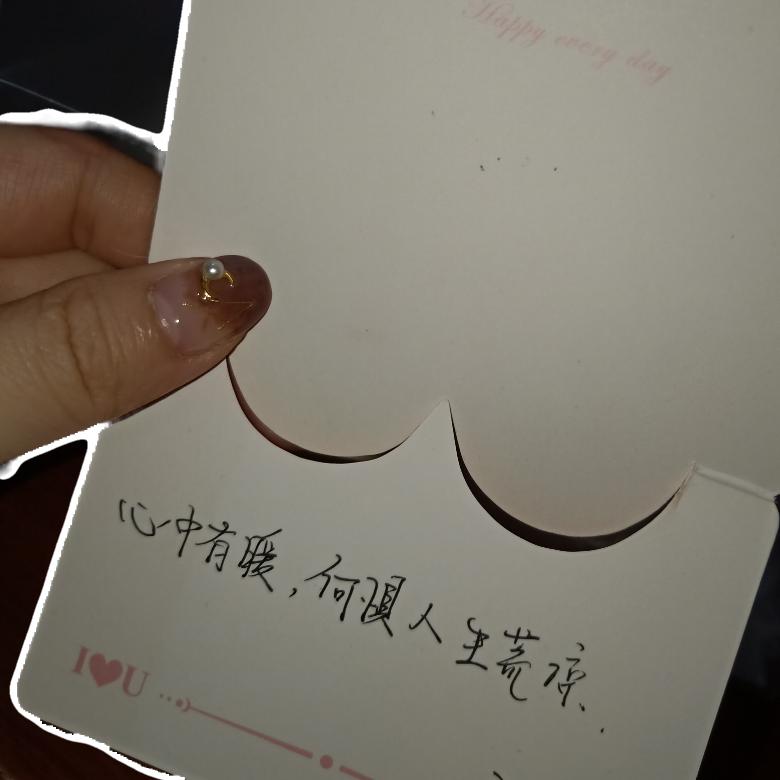 Happy every day
心中有暖,何惧人生荒凉.
I♥U